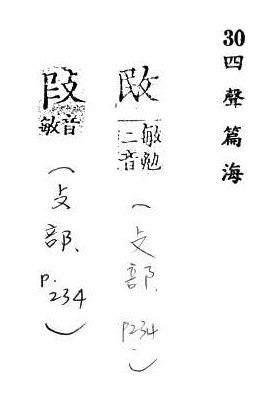 30四聲篇海
敃
敏勉
二音
(攴部. P234.)
音敏
(攴部. P.234)